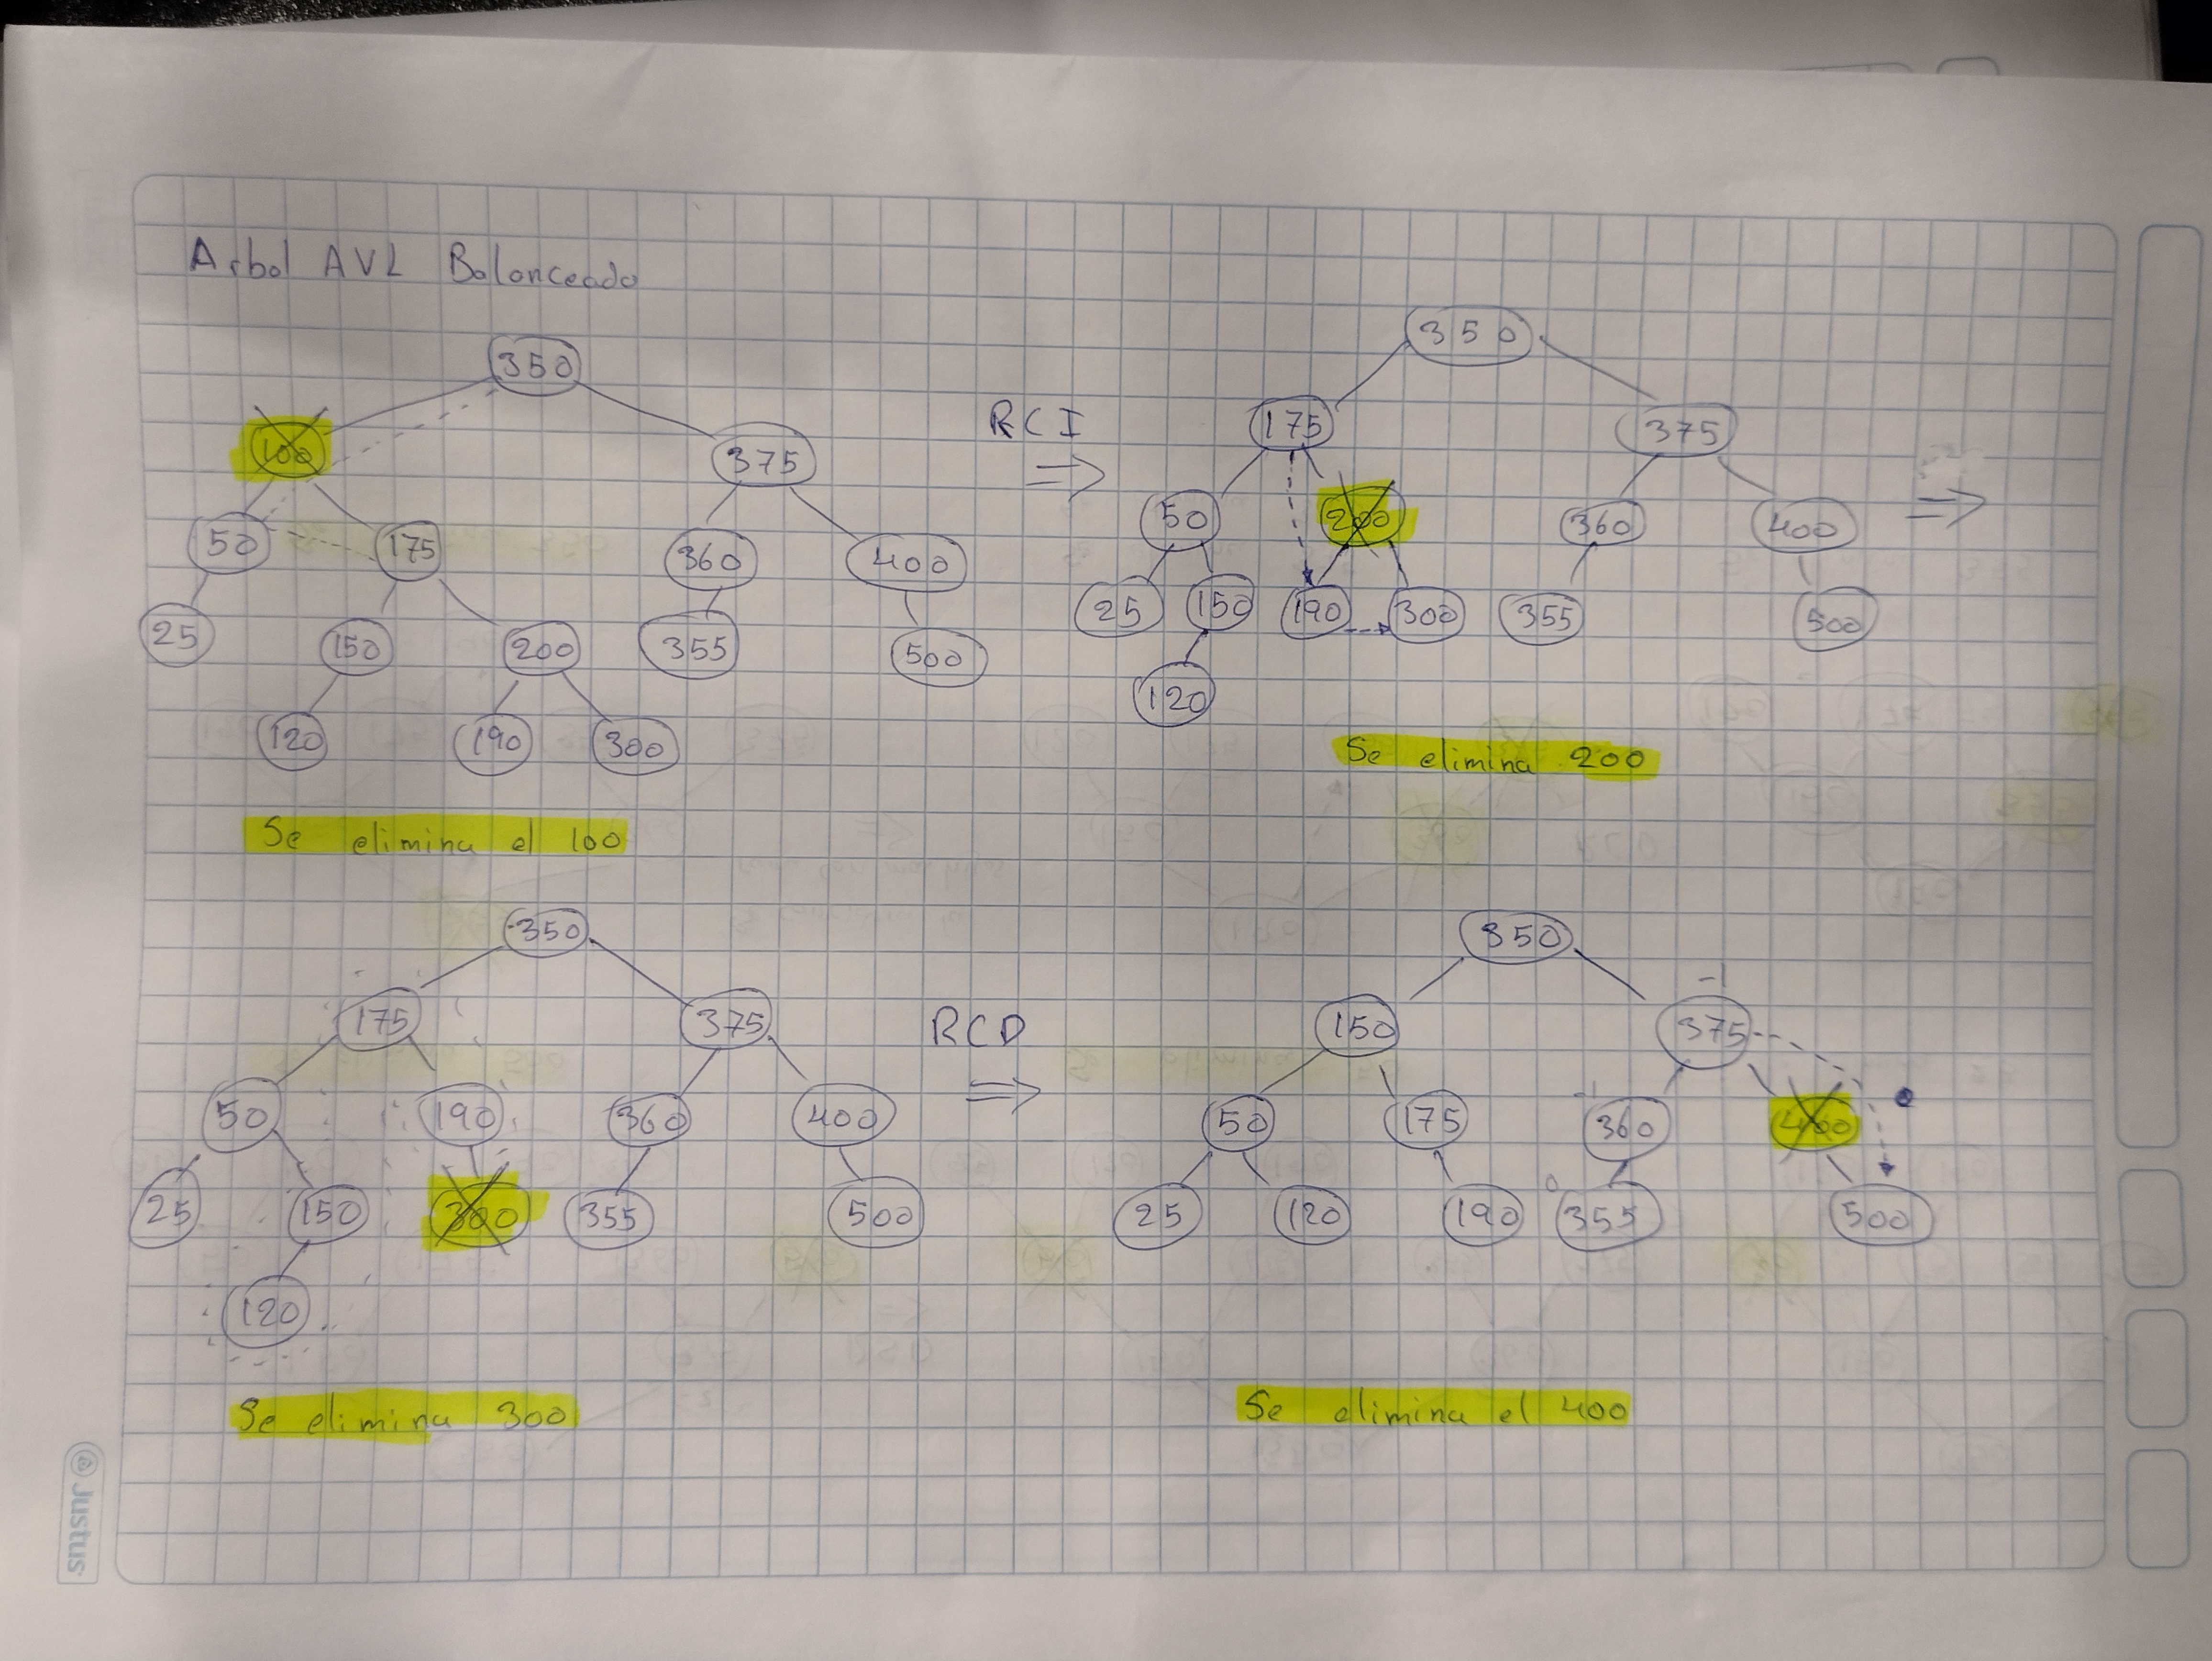 Arbol AVL Balanceado
350
100 375
50 175 360 400
25 150 200 355 500
120 190 300
Se elimina el 100
RCI
350
175 375
50 200 360 400
25 150 190 300 355 500
120
Se elimina 200
350
175 375
50 190 360 400
25 150 300 355 500
120
Se elimina 300
RCD
350
-1
150 375
50 175 360 400
0
25 120 190 355 500
Se elimina el 400
Justus